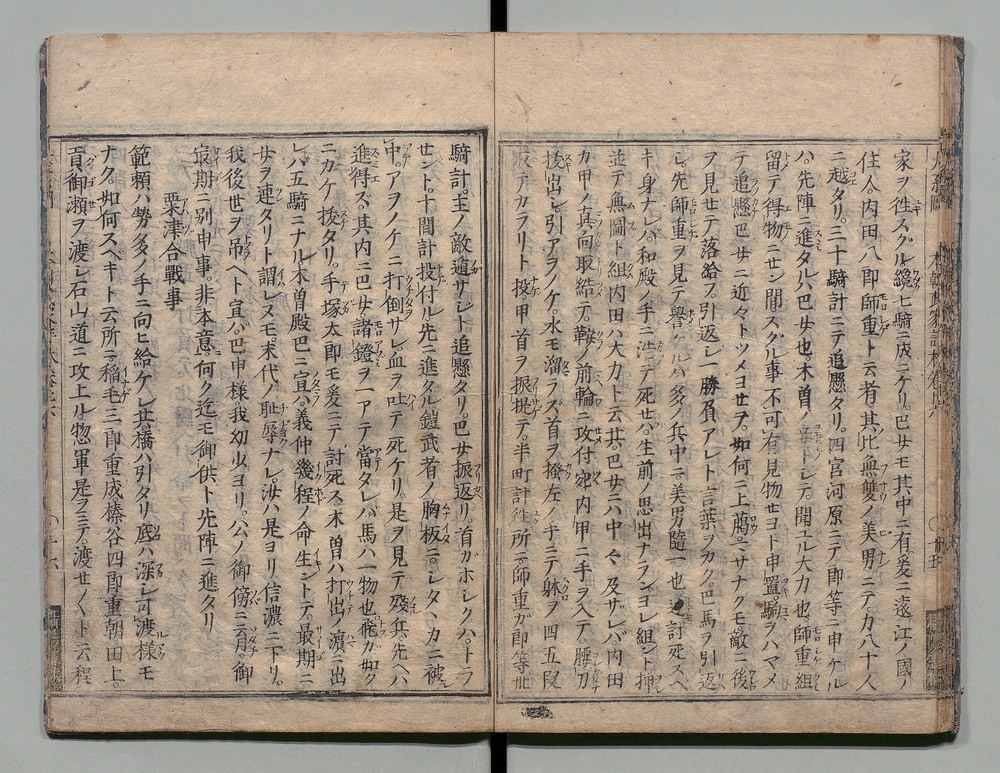 家ヲ徃スグル纔七騎ニ成ニケリ。巴女モ其中ニ有爰ニ遠江ノ國ノ
住人内田八郎師重ト云者其比無雙ノ美男ニテ力八十人
ニ越タリ。三十騎計ニテ追懸タリ。四宮河原ニテ郎等ニ申ケル
ハ。先陣ニ進タルハ巴女也。木曽ノトシテ。聞ユル大力也。師重組
留テ得物ニセン間。スクル事不可有見物セヨト申置。駒ヲハヤメ
テ追懸巴女ニ近々トツメヨセヲ。如何ニ上﨟ニサナクモ敵ニ後
ヲ見せテ落給フ。引返し一勝負アレト言葉ヲカク。巴馬ヲ引返
し。先師重ヲ見テ譽ケルハ多ノ兵中ニ。美男隨一也。討死スヘ
キ身ナレバ。和殿ノ手ニテ死せバ。生前ノ思出ナランヨレ組ント押
並テ無圖ト組。内田ハ大力ト云共。巴女ニハ中々及サレバ内田
カ甲ノ真向取結テ。鞍ノ前輪ニ攻付宛内甲ニ手ヲ入テ。腰刀
抜出シ引アヲノケ。水モ溜ラス首ヲ掻左ノ手ニテ躰ヲ四五段
テカラリト投甲首ヲ振提テ。半町計徃所ニ師重カ郎等卅
騎計。主ノ敵遁サレト追懸タリ。巴女振返リ。首ガホレクハ。トラ
セント。十間計投付ル先ニ進タル鎧武者ノ胸板ニ。レタヽカニ被
中。アヲノケニ打倒サレ血ヲ吐テ死ケリ。是ヲ見テ殘兵先ヘハ
進得ズ。其内ニ巴女諸鐙ヲ一アテ當タレバ馬ハ一物也飛カ如ク
ニカケ抜タリ。手塚太郎モ爰ニテ討死ス。木曽ハ打出ノ濱ニ出
レバ五騎ニナル木曽殿巴ニ宣ハ義仲幾程ノ命生ントテ最期ニ
女ヲ連タリト謂レスモ。末代ノ耻辱ナレ。汝ハ是ヨリ信濃ニ下リ。
我後世ヲ吊ヘト宣。巴申様我幼少ヨリ。公ノ御傍ニ云月。御
最期ニ別申事。非本意。何ク迄モ御供ト先陣ニ進タリ
粟津合戰事
範頼ハ勢多ノ手ニ向ヒ給ケレ共。橋ハ引タリ底ハ深レ可渡様モ
ナク。如何スベキト云所ニ。稲毛三郎重成。榛谷四郎重朝田上。
貢御瀬ヲ渡レ石山道ニ攻上ル惣軍是ヲミテ。渡せ〱ト云程